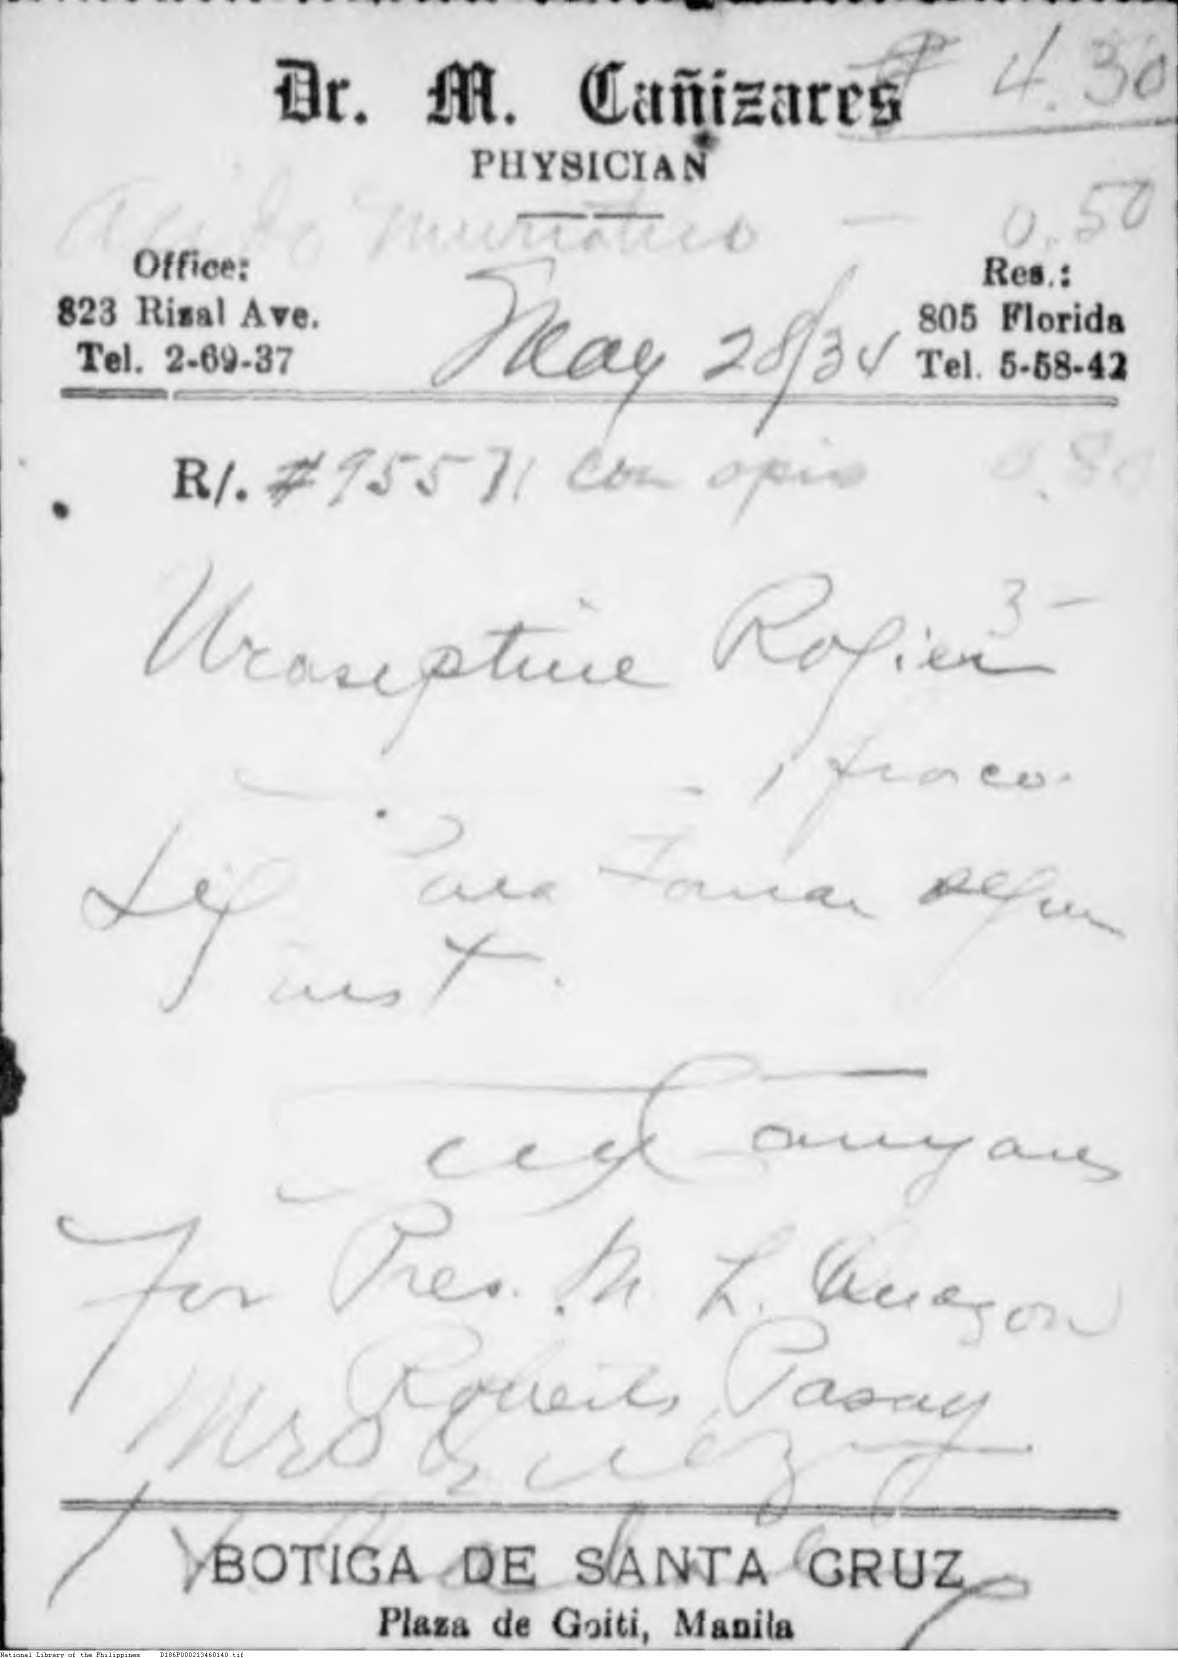 ₱ 4.30
Dr. M. Cañizares
PHYSICIAN
Acido Muriatico — 0.50
Office:
823 Rizal Ave.
Tel. 2-69-37
May 28/34
Res.:
805 Florida
Tel. 5-58-42
R/. #95571 con opio 0.80
Uraseptine Rogier 3-
1 frasco
Sig Para Tomar segun
inst.
Canizares
For Pres. M. L. Quezon
Roberts, Pasay
Mrs Quezon
BOTICA DE SANTA CRUZ
Plaza de Goiti, Manila
National Library of the Philippines D186P000213460140.tif